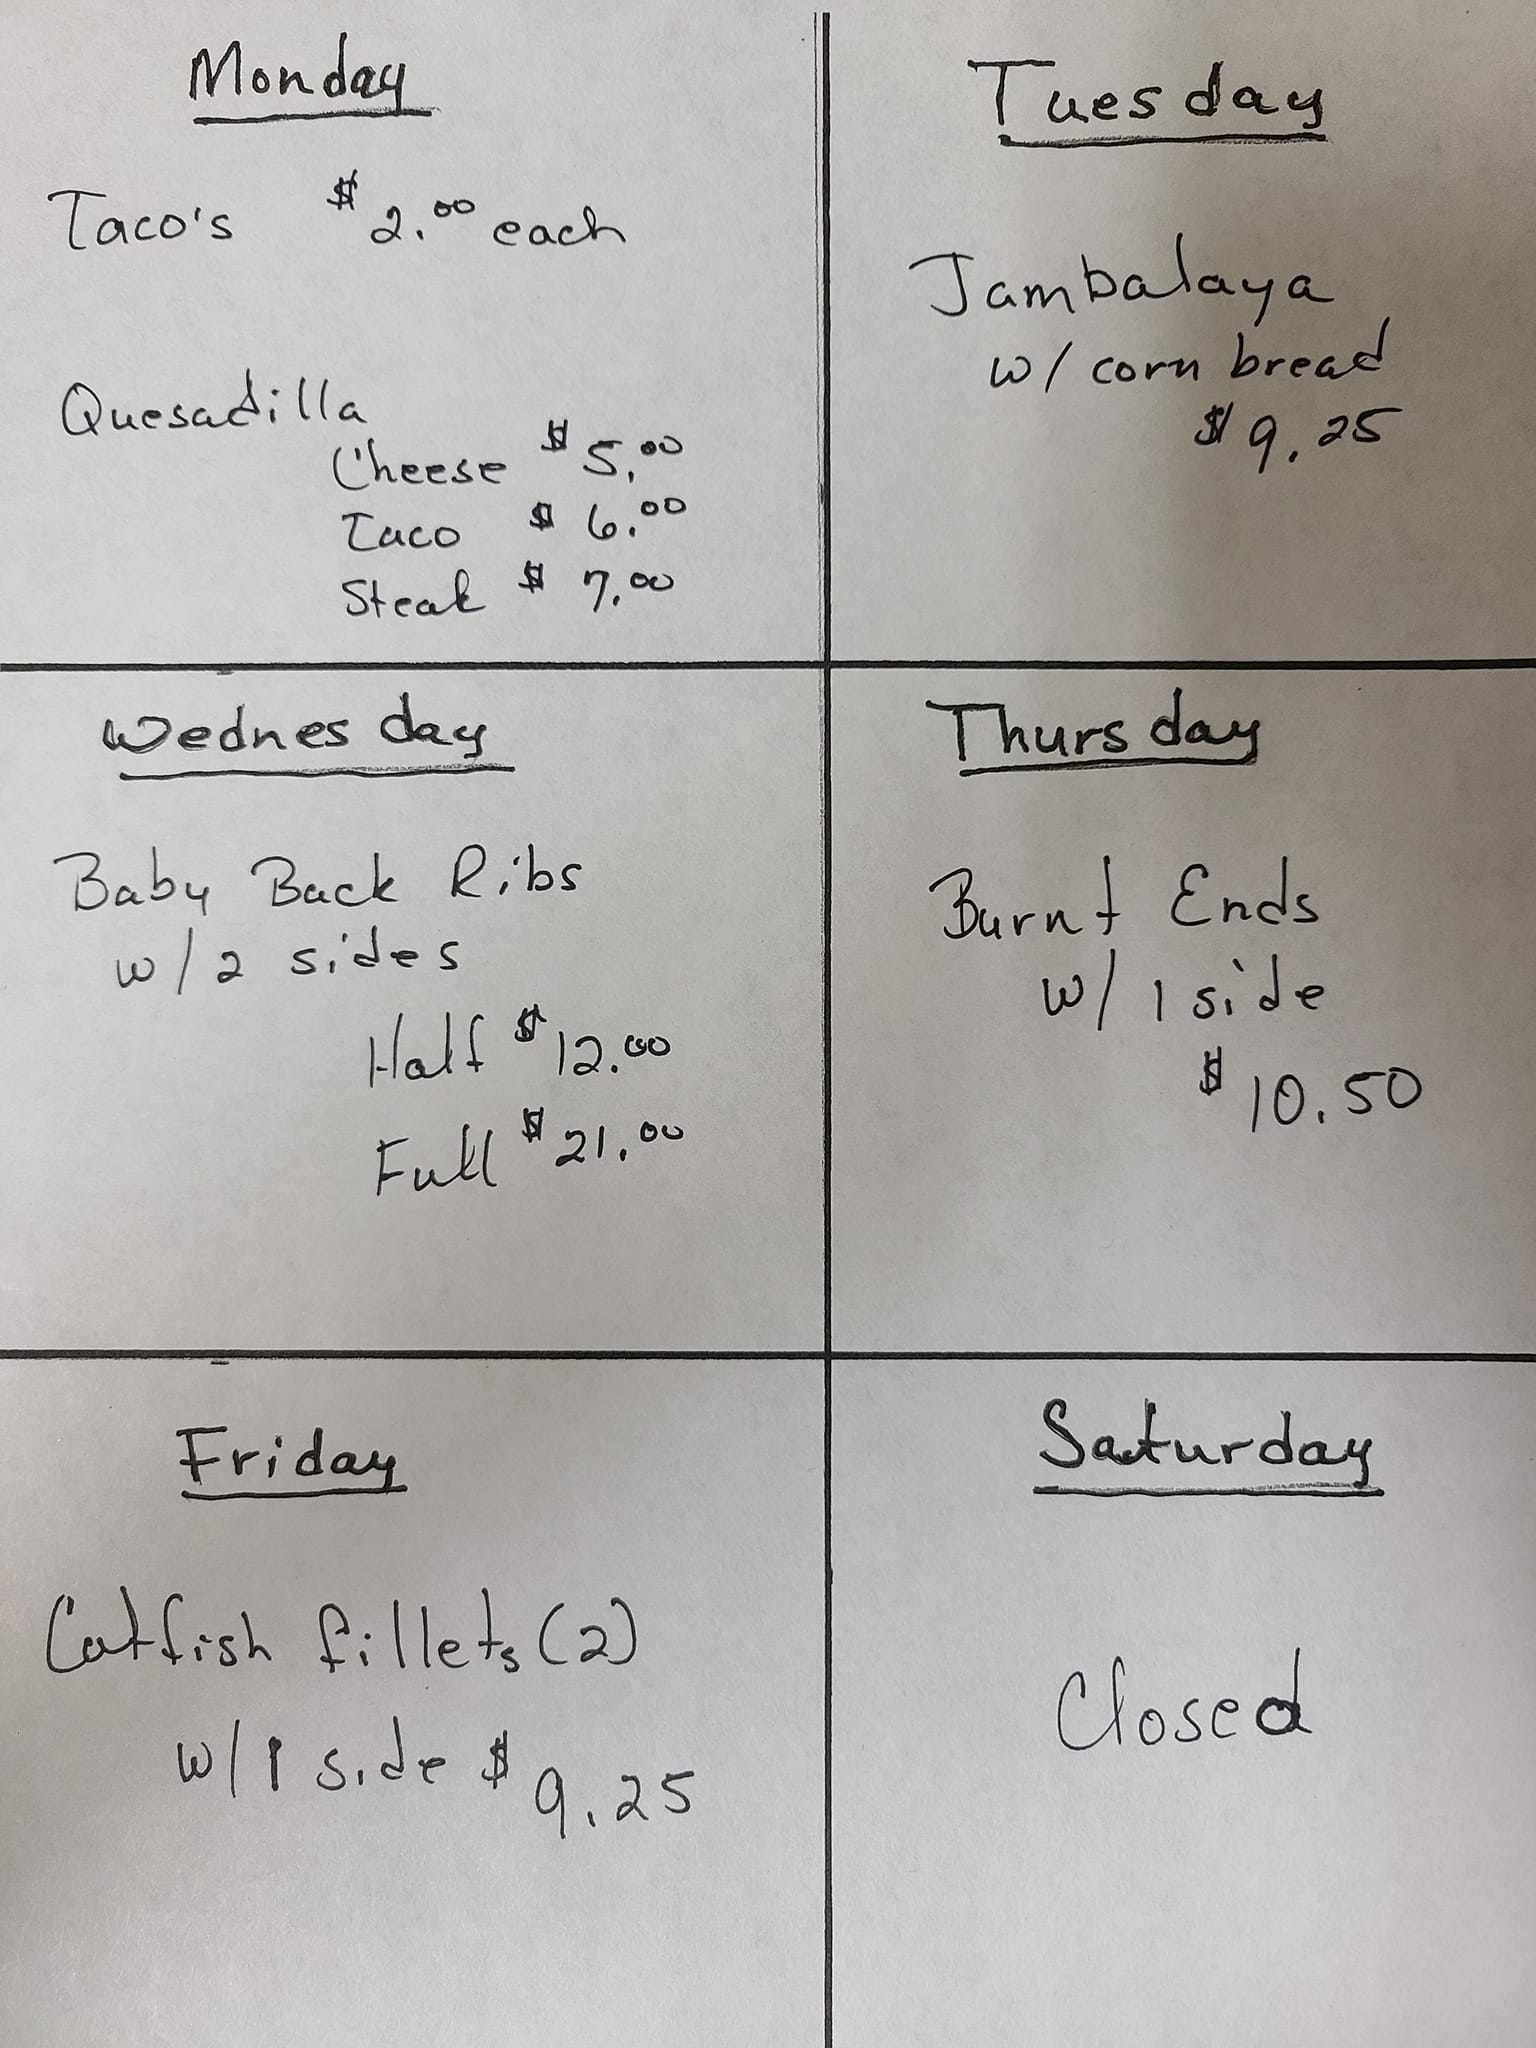 Monday
Taco's $2.00 each
Quesadilla
Cheese $5.00
Taco $6.00
Steak $7.00
Tuesday
Jambalaya
w/ corn bread
$9.25
Wednesday
Baby Back Ribs
w/2 sides
Half $12.00
Full $21.00
Thursday
Burnt Ends
w/ 1 side
$10.50
Friday
Catfish fillets (2)
w/1 side $9.25
Saturday
Closed